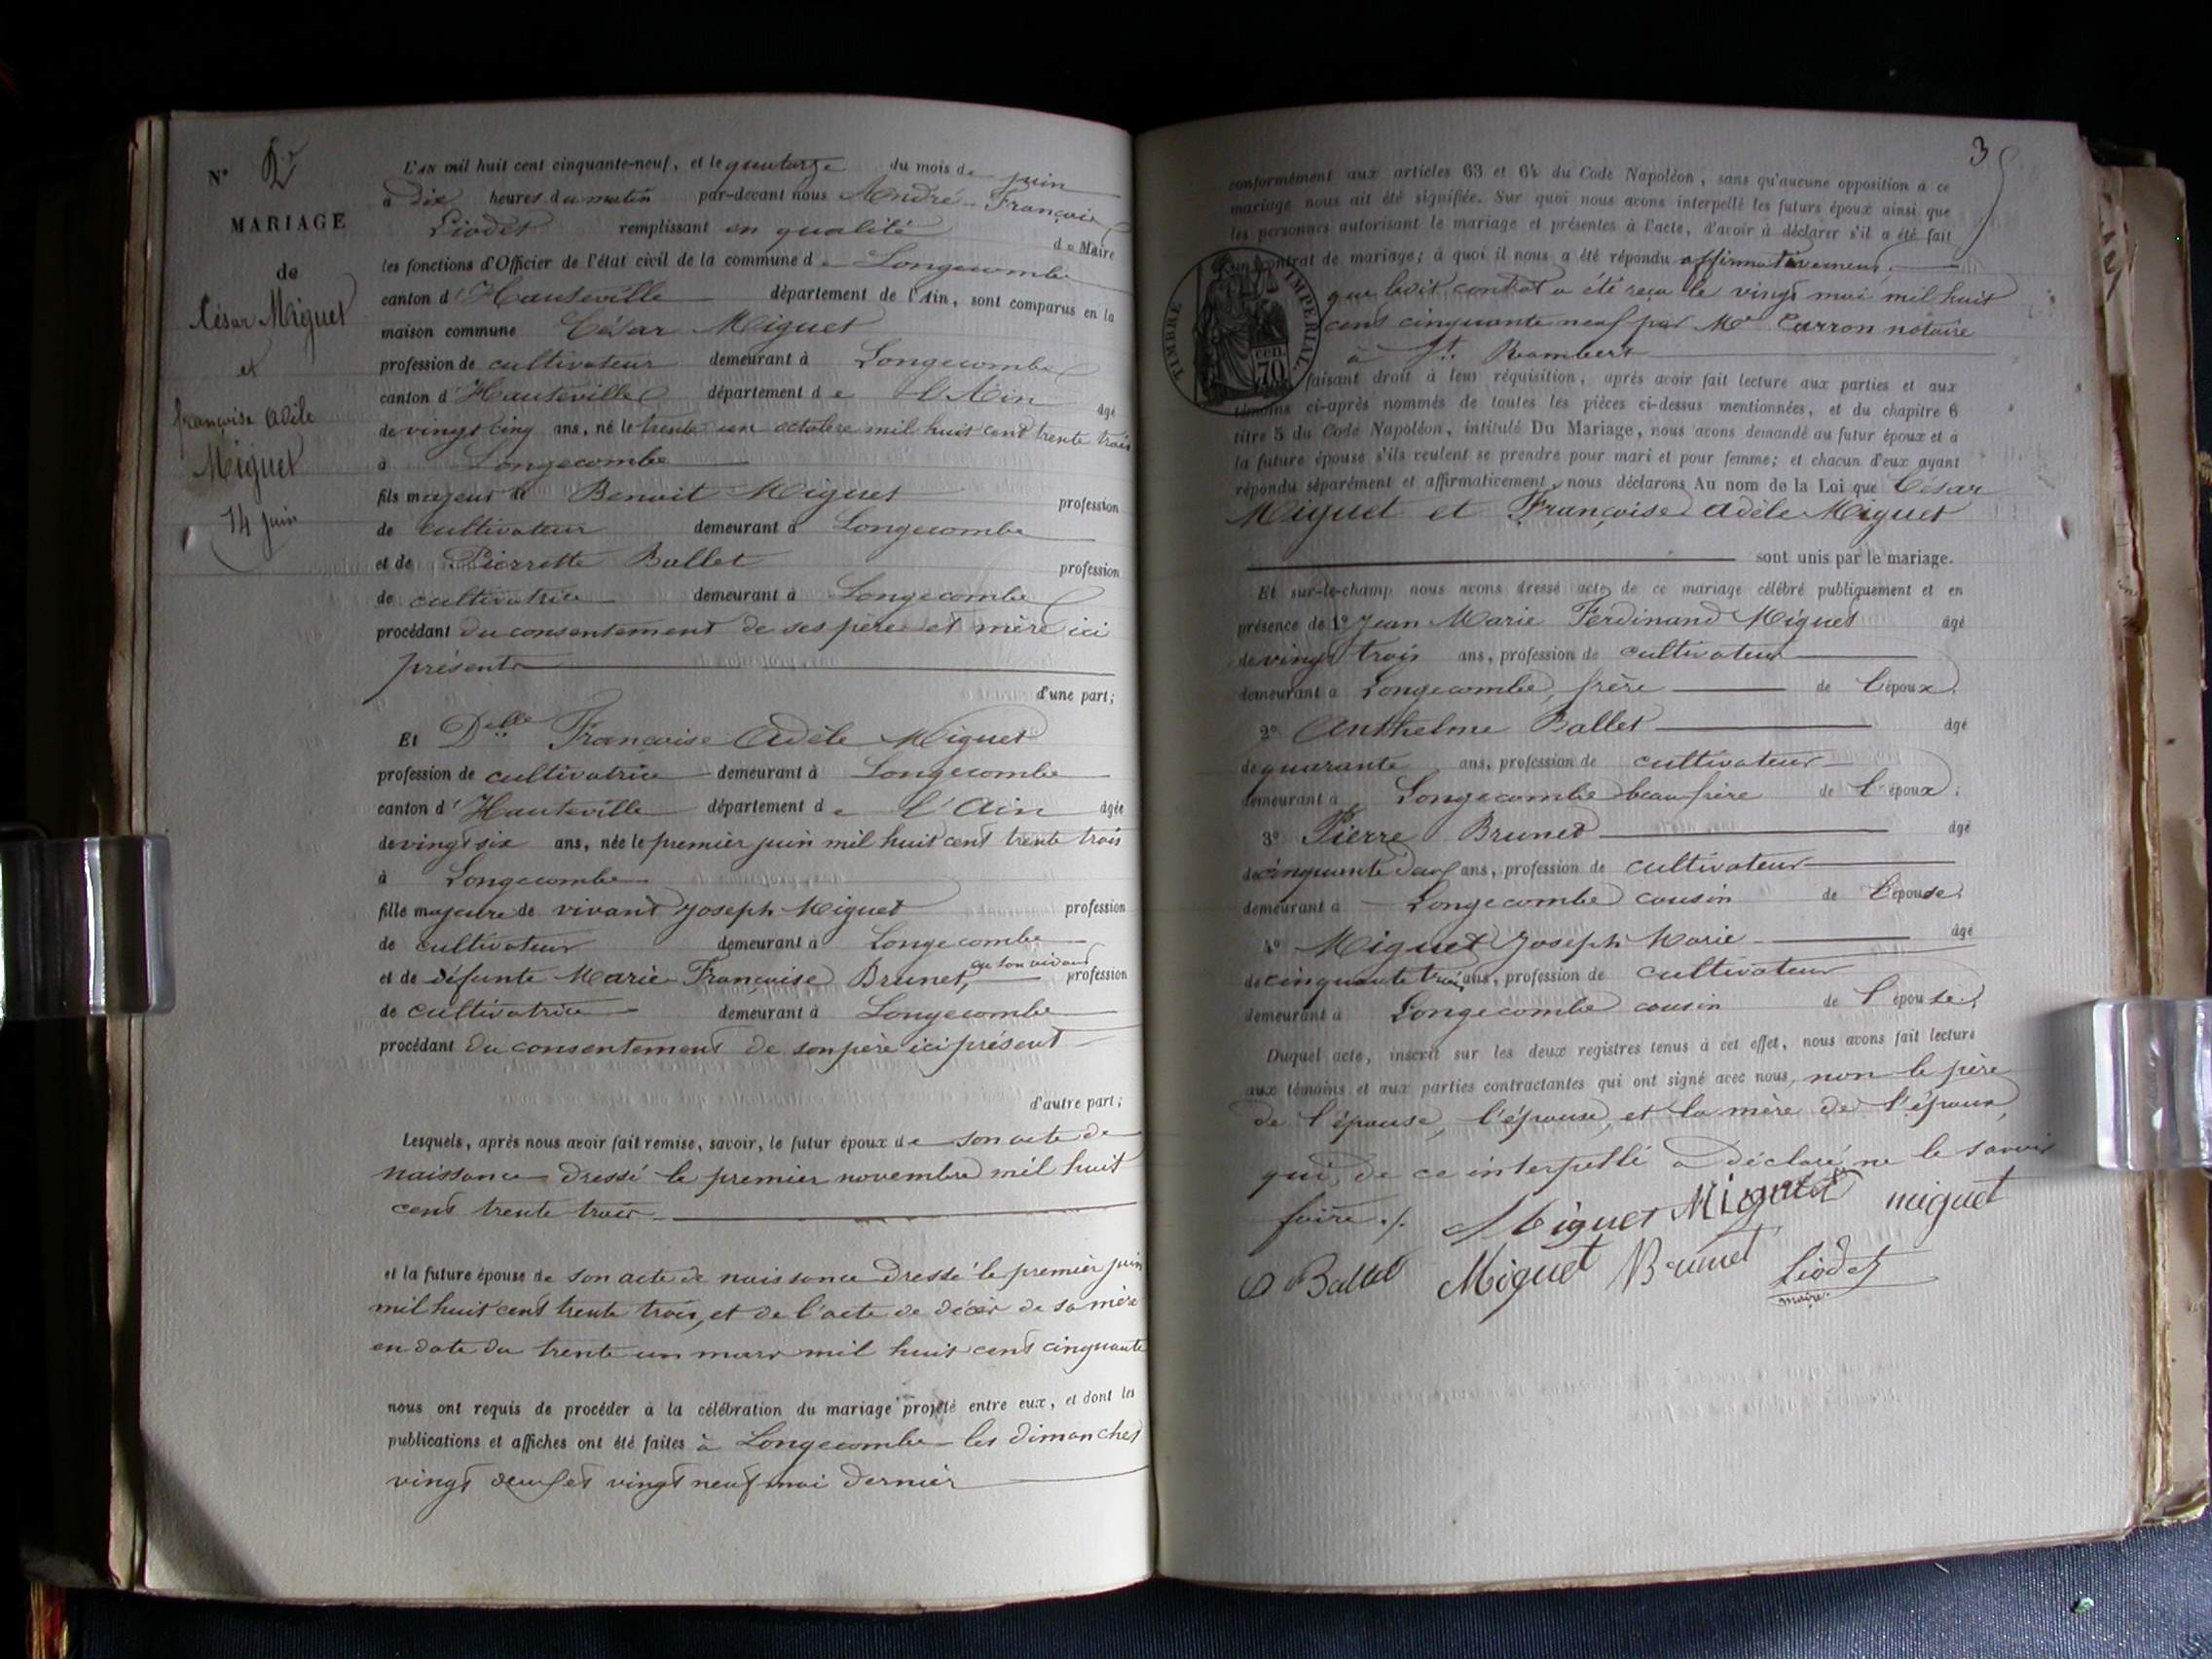 N° 2
MARIAGE
de
César Miguet
et
françoise adèle
Miguet
14 juin
L'AN mil huit cent cinquante-neuf, et le quatorze du mois de juin
à dix heures du matin par-devant nous André-François
Liodet remplissant en qualité de Maire
les fonctions d'Officier de l'état civil de la commune de Longecombe
canton d'Hauteville département de l'Ain, sont comparus en la
maison commune César Miguet
profession de cultivateur demeurant à Longecombe
canton d'Hauteville département de l'Ain âgé
de vingt cinq ans, né le trente un octobre mil huit cent trente trois
à Longecombe
fils majeur de Benoit Miguet profession
de cultivateur demeurant à Longecombe
et de Pierrette Ballet profession
de cultivatrice demeurant à Longecombe
procédant du consentement de ses père et mère ici
présents
d'une part;
Et Delle Françoise Adèle Miguet
profession de cultivatrice demeurant à Longecombe
canton d'Hauteville département de l'Ain âgée
de vingt six ans, née le premier juin mil huit cent trente trois
à Longecombe
fille majeure de vivant Joseph Miguet profession
de cultivateur demeurant à Longecombe
et de défunte Marie Françoise Brunet, en son vivant profession
de cultivatrice demeurant à Longecombe
procédant du consentement de son père ici présent
d'autre part;
Lesquels, après nous avoir fait remise, savoir, le futur époux de son acte de
naissance dressé le premier novembre mil huit
cent trente trois
et la future épouse de son acte de naissance dressé le premier juin
mil huit cent trente trois, et de l'acte de décès de sa mère
en date du trente un mars mil huit cent cinquante
nous ont requis de procéder à la célébration du mariage projeté entre eux, et dont les
publications et affiches ont été faites à Longecombe les dimanches
vingt deux et vingt neuf mai dernier
3
conformément aux articles 63 et 64 du Code Napoléon, sans qu'aucune opposition à ce
mariage nous ait été signifiée. Sur quoi nous avons interpellé les futurs époux ainsi que
les personnes autorisant le mariage et présentes à l'acte, d'avoir à déclarer s'il a été fait
un contrat de mariage; à quoi il nous a été répondu affirmativement.
que ledit contrat a été reçu le vingt mai mil huit
cent cinquante neuf par Me Carron notaire
à St. Rambert
TIMBRE IMPERIAL
cen. 70
faisant droit à leur réquisition, après avoir fait lecture aux parties et aux
témoins ci-après nommés de toutes les pièces ci-dessus mentionnées, et du chapitre 6
titre 5 du Code Napoléon, intitulé Du Mariage, nous avons demandé au futur époux et à
la future épouse s'ils veulent se prendre pour mari et pour femme; et chacun d'eux ayant
répondu séparément et affirmativement, nous déclarons Au nom de la Loi que César
Miguet et Françoise Adèle Miguet
sont unis par le mariage.
Et sur-le-champ nous avons dressé acte de ce mariage célébré publiquement et en
présence de 1° Jean Marie Ferdinand Miguet âgé
de vingt trois ans, profession de cultivateur
demeurant à Longecombe, frère de l'époux.
2° Anthelme Ballet âgé
de quarante ans, profession de cultivateur
demeurant à Longecombe beau frère de l'époux;
3° Pierre Brunet âgé
de cinquante deux ans, profession de cultivateur
demeurant à Longecombe cousin de l'épouse.
4° Miguet Joseph Marie âgé
de cinquante trois ans, profession de cultivateur
demeurant à Longecombe cousin de l'épouse.
Duquel acte, inscrit sur les deux registres tenus à cet effet, nous avons fait lecture
aux témoins et aux parties contractantes qui ont signé avec nous, non le père
de l'épouse, l'épouse, et la mère de l'époux,
qui de ce interpellé a déclaré ne le savoir
faire ./. Miguet Miguet miguet
Ballet Miguet Brunet Liodet
maire.